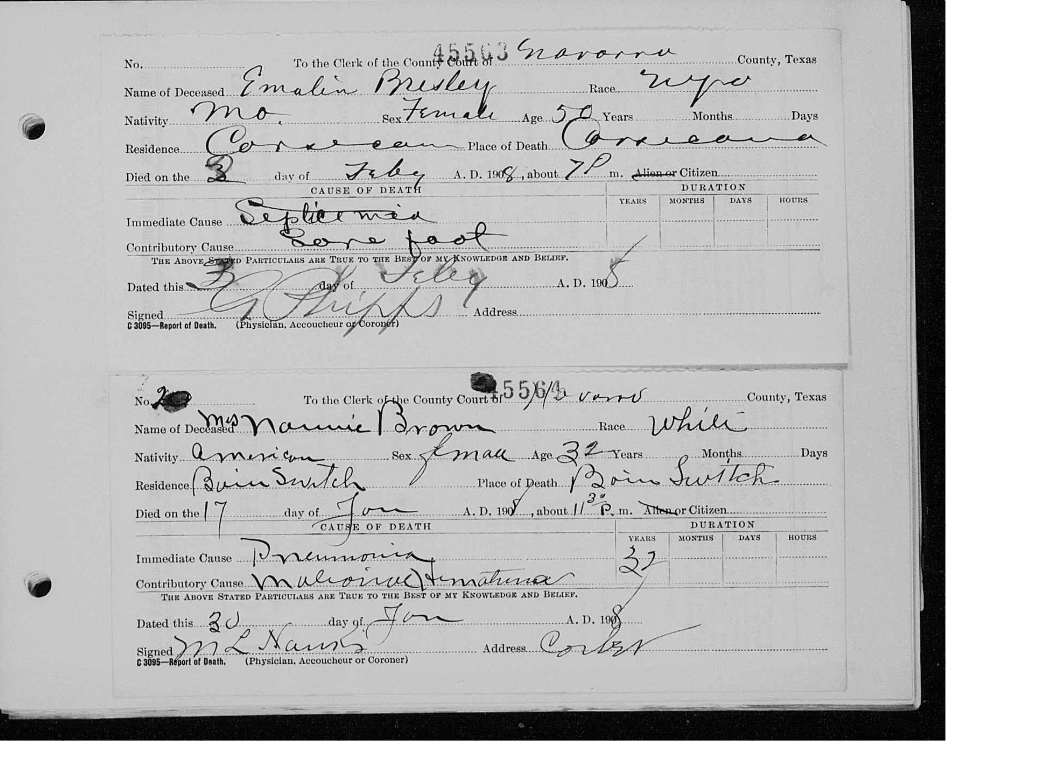 45563
No. To the Clerk of the County Court of Navarro County, Texas
Name of Deceased Emalin Presley Race
Nativity Mo. Sex Female Age 50 Years Months Days
Residence Corsicana Place of Death Corsicana
Died on the 3 day of Feby A. D. 1908, about 7 P m. Alien or Citizen.
CAUSE OF DEATH DURATION
YEARS MONTHS DAYS HOURS
Immediate Cause Septicemia
Contributory Cause Sore foot
The Above Stated Particulars are True to the Best of my Knowledge and Belief.
Dated this 3 day of Feby A. D. 1908
Signed Phipps Address
C 3095—Report of Death. (Physician, Accoucheur or Coroner)
45564
No. To the Clerk of the County Court of Navarro County, Texas
Name of Deceased Mrs Nannie Brown Race White
Nativity American Sex Age 32 Years Months Days
Residence Switch Place of Death Switch
Died on the 17 day of Jan A. D. 1908, about 11 30 P. m. Alien or Citizen.
CAUSE OF DEATH DURATION
YEARS MONTHS DAYS HOURS
Immediate Cause Pneumonia 32
Contributory Cause Malarial Hematuria
The Above Stated Particulars are True to the Best of my Knowledge and Belief.
Dated this 30 day of Jan A. D. 1908
Signed M L Address Corbet
C 3095—Report of Death. (Physician, Accoucheur or Coroner)